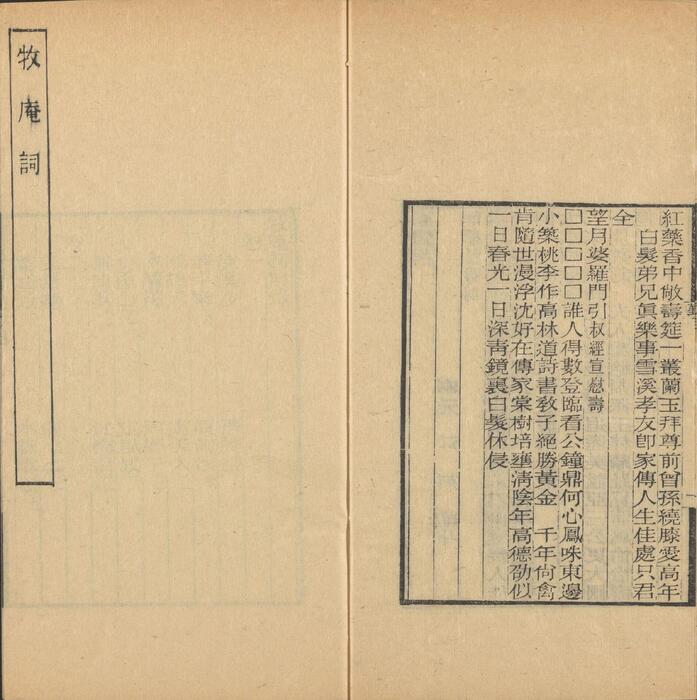 紅藥香中敞壽筵一叢蘭玉拜尊前曾孫繞膝愛高年
白髮弟兄眞樂事雪溪孝友卽家傳人生佳處只君
全
望月婆羅門引叔經宣慰壽
□□□□□誰人得數登臨看公鐘鼎何心鳳咮東邊
小築桃李作高林道詩書敎子絕勝黃金　千年尙禽
肯隨世漫浮沈好在傳家棠樹培壅淸陰年高德劭似
一日春光一日深靑鏡裏白髮休侵
牧庵詞